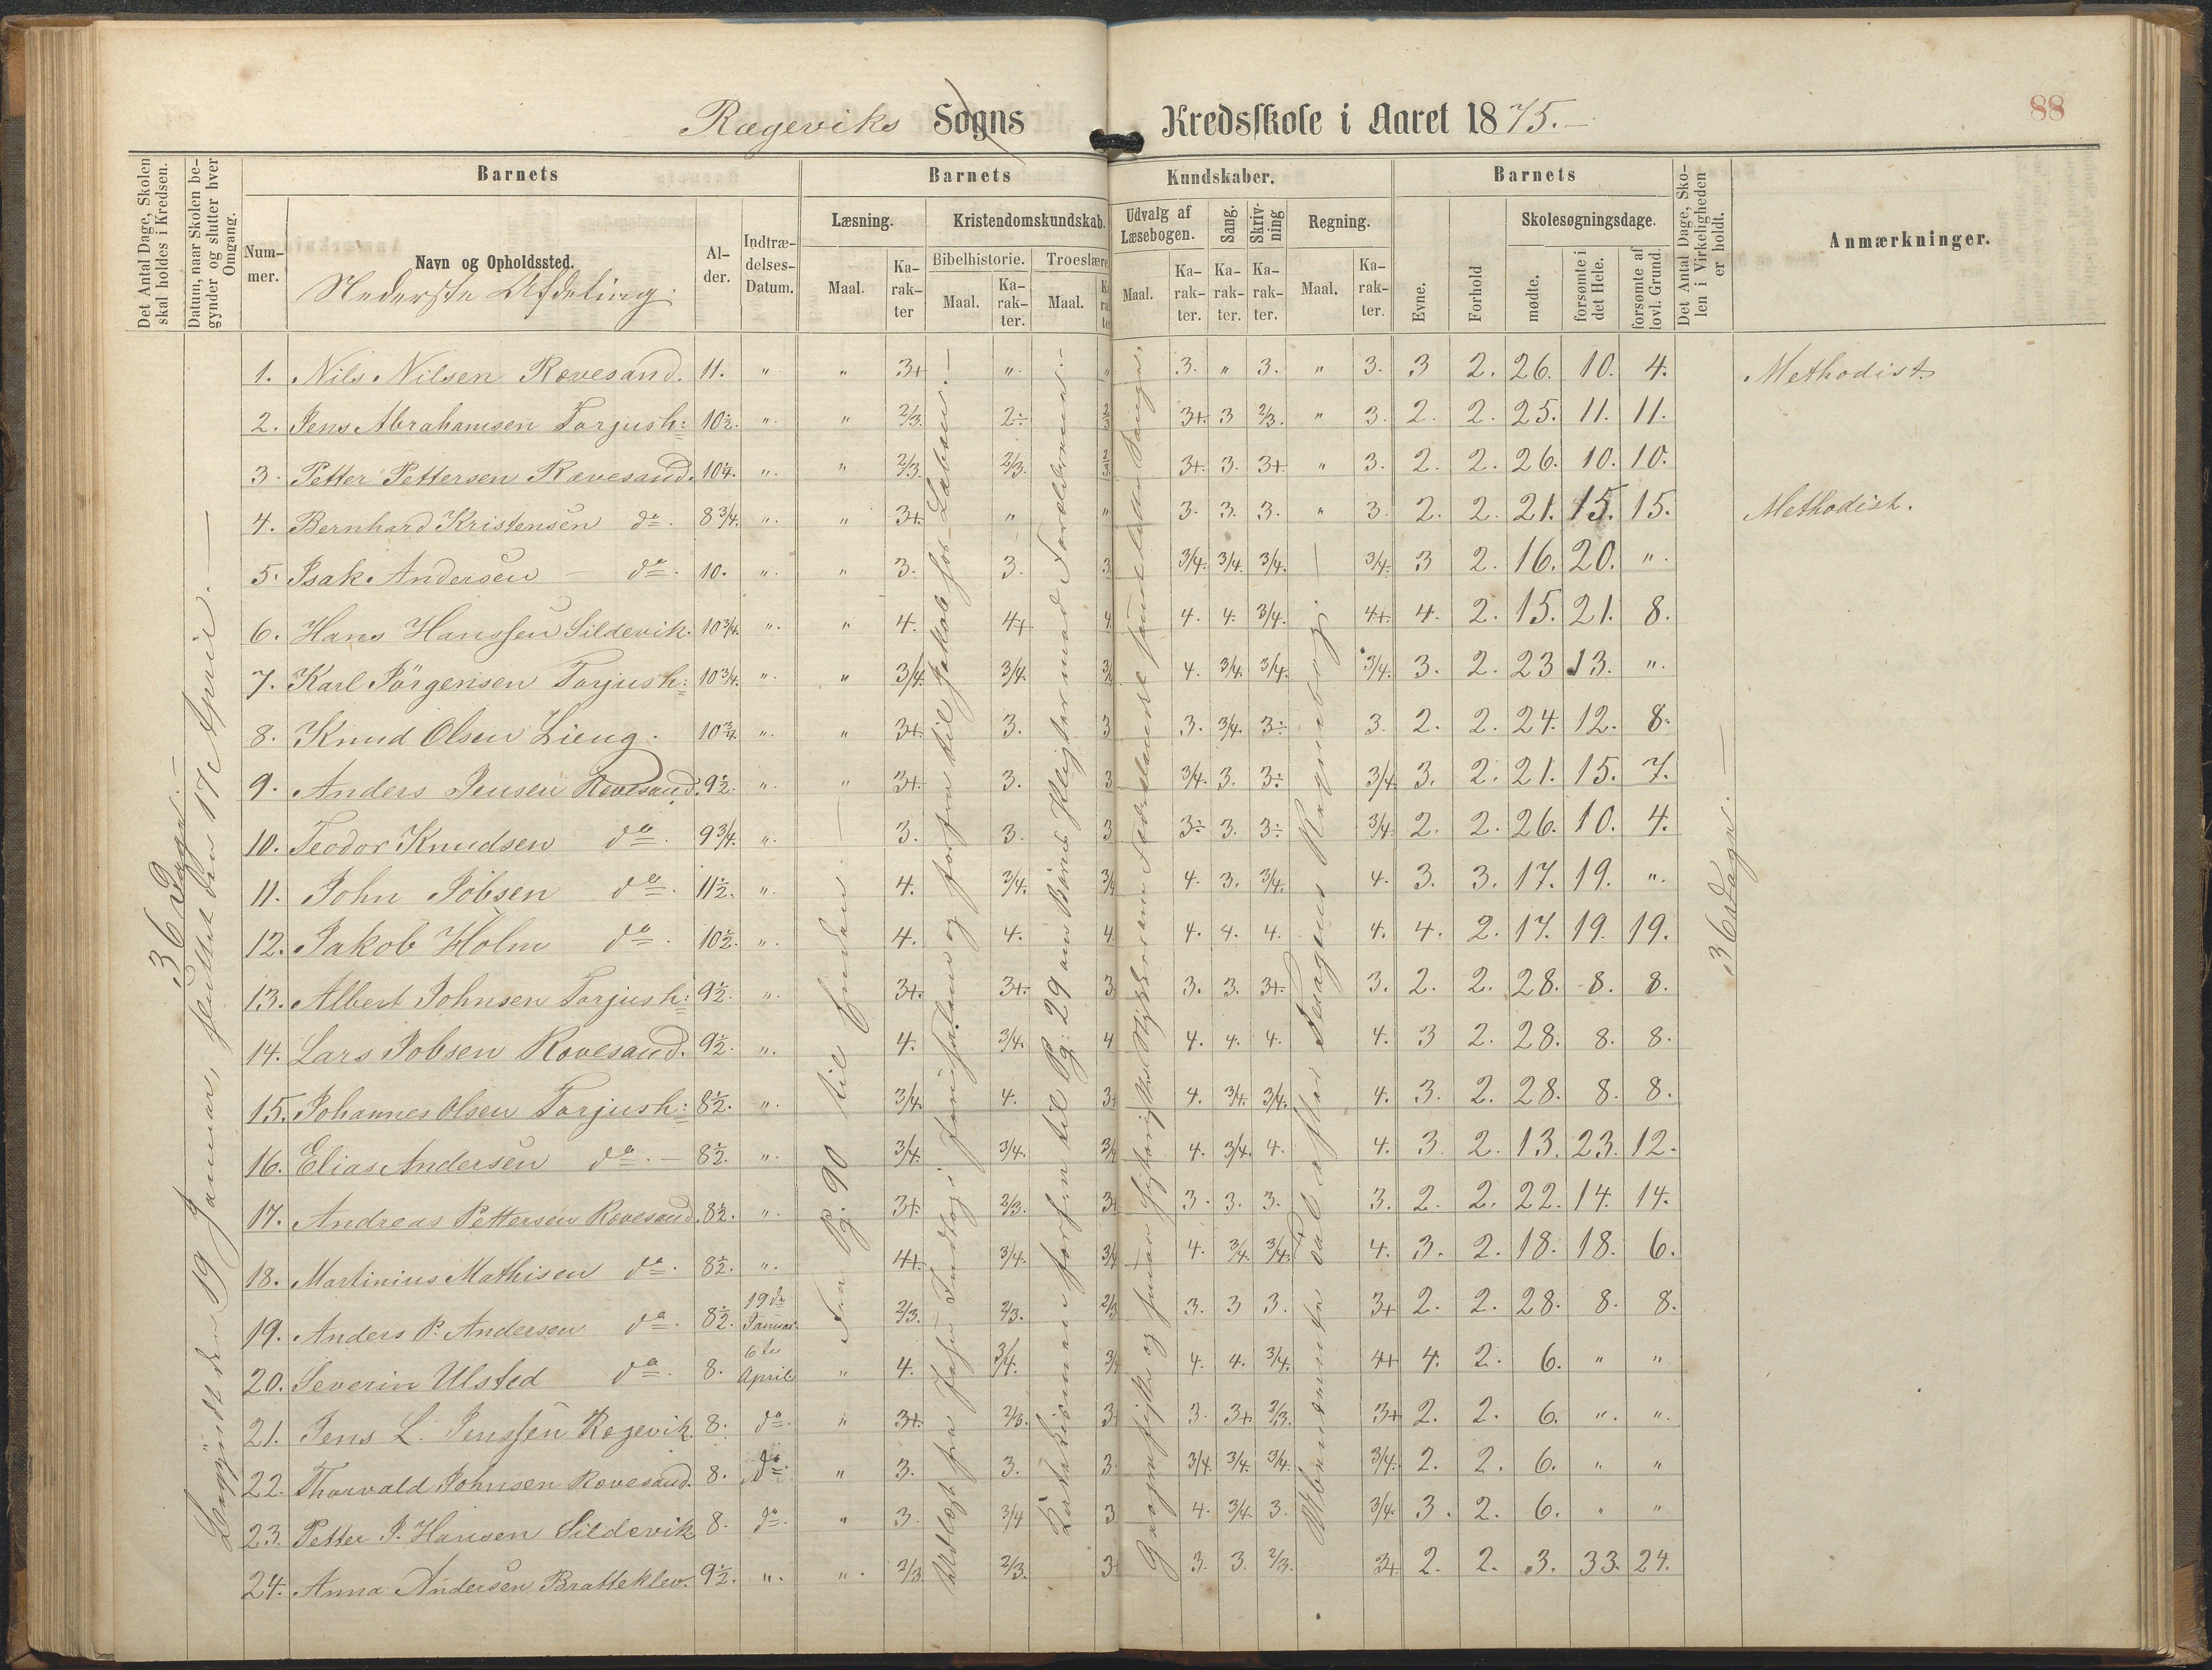 88
Rægeviks Sogns Kredsskole i Aaret 1875.
Det Antal Dage, Skolen skal holdes i Kredsen.
Datum, naar Skolen begynder og slutter hver Omgang.
Barnets
Barnets Kundskaber.
Barnets
Det Antal Dage, Skolen i Virkeligheden er holdt.
Anmærkninger.
Nummer.
Navn og Opholdssted.
Nederste Afdeling.
Alder.
Indtrædelses-Datum.
Læsning.
Kristendomskundskab.
Udvalg af Læsebogen.
Sang.
Skrivning
Regning.
Evne.
Forhold
Skolesøgningsdage.
Bibelhistorie.
Troeslære
Maal.
Karakter
Maal.
Karakter.
Maal.
Maal.
Karakter.
Karakter.
Karakter.
Maal.
Karakter.
mødte.
forsømte i det Hele.
forsømte af lovl. Grund.
36 Dage.
Begyndt den 19 Januar, sluttet den 17 April.
Fra Pg. 90 til Enden.
til Jakob hos Laban.
Pg: 29
36 Dage.
1. Nils Nilsen Rævesand. 11. " " 3+ " " 3. " 3. " 3. 3 2. 26. 10. 4. Methodist
2. Jens Abrahamsen Torjush: 10½. " " 2/3. 2÷ 2/3 3+ 3 2/3. " 3. 2. 2. 25. 11. 11.
3. Petter Pettersen Rævesand. 10¼. " " 2/3. 2/3. 2/3 3+. 3. 3+. " 3. 2. 2. 26. 10. 10.
4. Bernhard Kristensen do. 8¾. " " 3+. " " 3. 3. 3. " 3. 2. 2. 21. 15. 15. Methodist.
5. Isak Andersen do. 10. " " 3. 3. 3 3/4. 3/4. 3/4. 3/4. 3 2. 16. 20. "
6. Hans Hanssen Sildevik. 10¾. " " 4. 4+ 4 4. 4. 3/4. 4+. 4. 2. 15. 21. 8.
7. Karl Jörgensen Torjush: 10¾. " " 3/4. 3/4. 3/4 4. 3/4. 3/4. 3/4. 3. 2. 23 13. "
8. Knud Olsen Lieng. 10¾. " " 3+. 3. 3 3. 3/4. 3÷ 3. 2. 2. 24. 12. 8.
9. Anders Jensen Rævesand. 9½. " " 3+. 3. 3 3/4. 3. 3÷ 3/4. 3. 2. 21. 15. 7.
10. Teodor Knudsen do. 9¾. " 3. 3. 3 3÷ 3. 3÷ 3/4. 2. 2. 26. 10. 4.
11. John Jobsen do. 11½. " 4. 3/4. 3/4 4. 3. 3/4. 4. 3. 3. 17. 19. "
12. Jakob Holm do. 10½. " 4. 4. 4. 4. 4. 4. 4. 4. 2. 17. 19. 19.
13. Albert Johnsen Torjush: 9½. " 3+. 3+. 3 3. 3. 3+. 3. 2. 2. 28. 8. 8.
14. Lars Jobsen Rævesand. 9½. " 4. 3/4. 4 4. 4. 4. 4. 3 2. 28. 8. 8.
15. Johannes Olsen Torjush: 8½. " 3/4. 4. 3+ 4. 3/4. 3/4. 4. 3. 2. 28. 8. 8.
16. Elias Andersen do. 8½. " 3/4. 3/4. 3/4 4. 3/4. 4. 4. 3. 2. 13. 23. 12.
17. Andreas Pettersen Rævesand. 8½. " 3+. 2/3. 3+ 3. 3. 3. 3. 2. 2. 22. 14. 14.
18. Martinius Mathisen do. 8½. " 4+. 3/4. 3/4 4. 3/4. 3/4. 4. 3. 2. 18. 18. 6.
19. Anders P. Andersen do. 8½. 19de Januar. 2/3. 2/3. 2/3 3. 3 3. 3+ 2. 2. 28. 8. 8.
20. Severin Ulsted do. 8. 6te April " 4. 3/4. 3/4 4. 4. 3/4. 4+ 4. 2. 6. " "
21. Jens L. Jenssen Rægevik 8. do. " 3+. 2/3. 3+ 3. 3+. 2/3. 3+ 2. 2. 6. " "
22. Thorvald Johnsen Rævesand. 8. do. " 3. 3. 3 3/4. 3/4. 3/4. 3/4. 2. 2. 6. " "
23. Petter J. Hansen Sildevik 8. do. " 3. 3/4 3 4. 3/4. 3. 3/4. 3. 2. 6. " "
24. Anna Andersen Bratteklev. 9½. " " 2/3. 2/3. 3+ 3. 3. 2/3. 3+. 2. 2. 3. 33. 24.